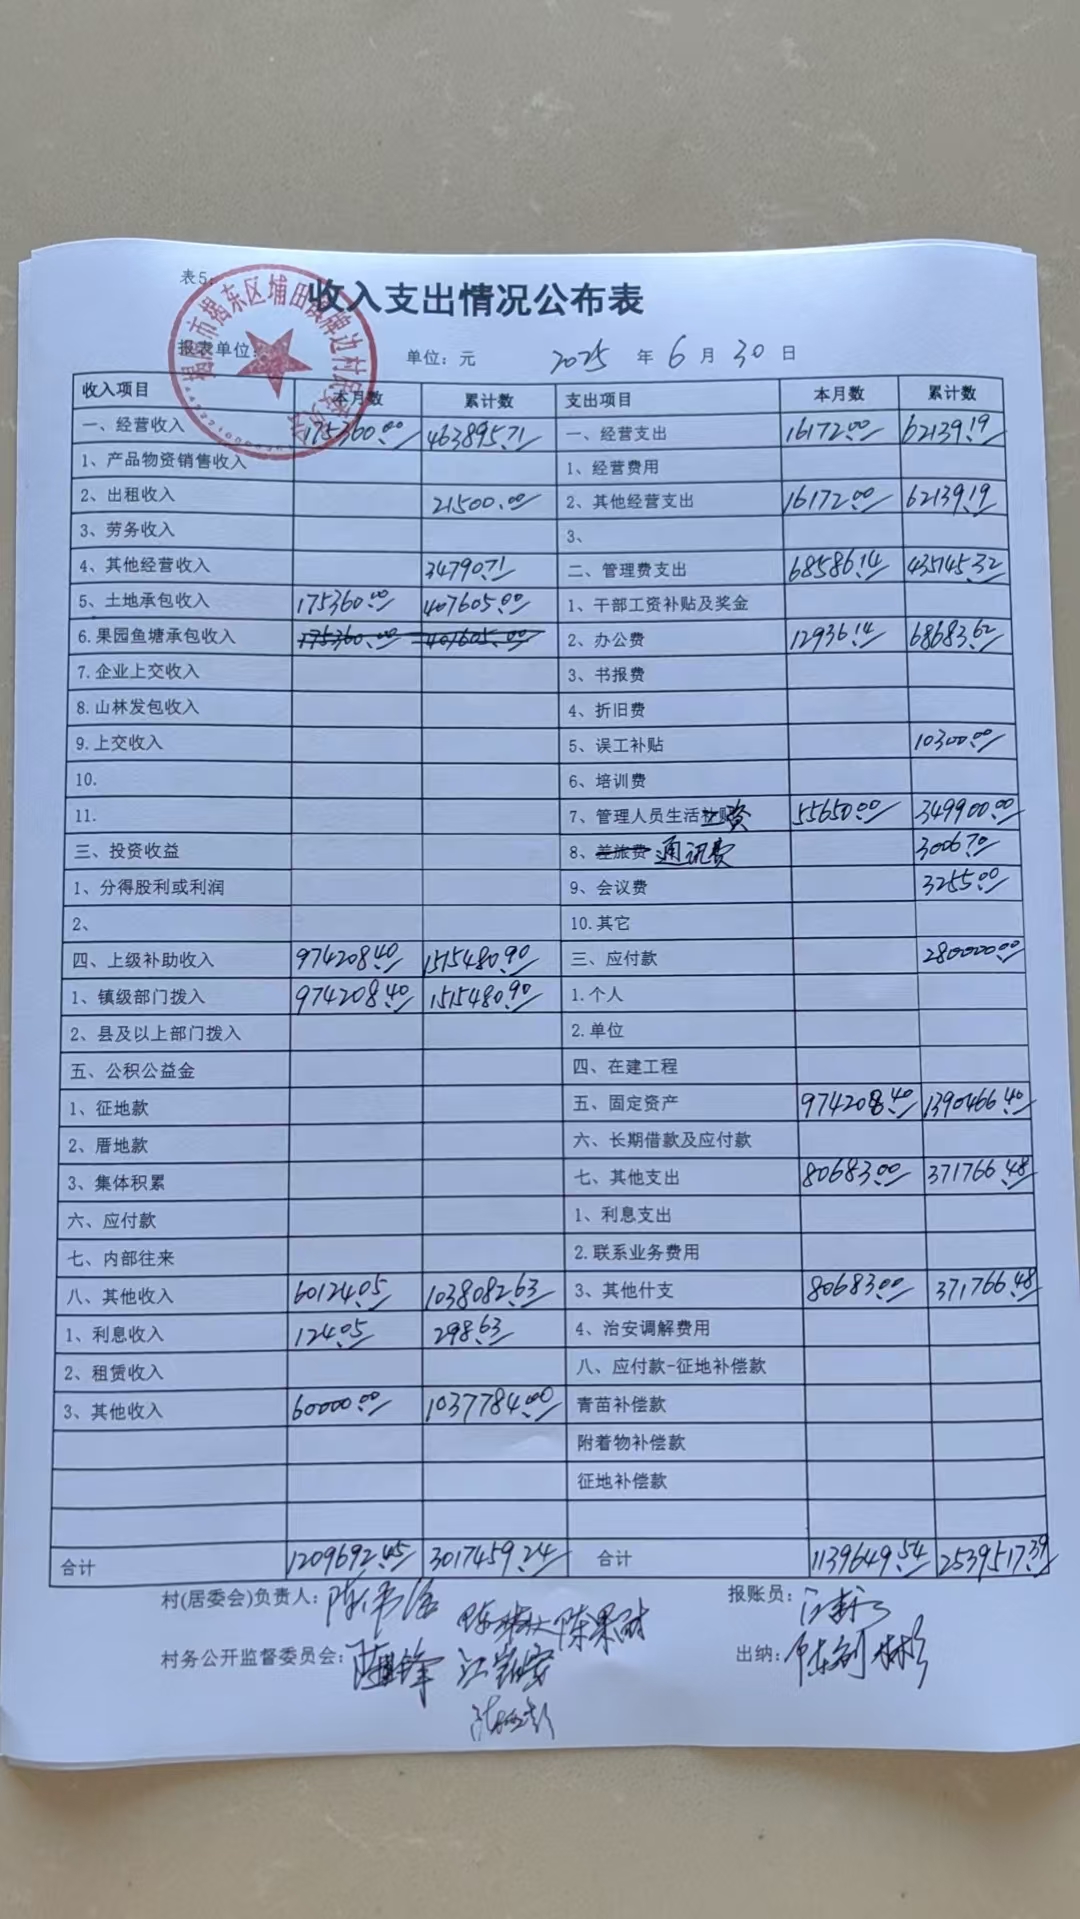 表5:
收入支出情况公布表
报表单位: 单位:元 2025 年 6 月 30 日
收入项目 本月数 累计数 支出项目 本月数 累计数
一、经营收入 175360.00 463895.71 一、经营支出 16172.00 62139.19
1、产品物资销售收入 1、经营费用
2、出租收入 21500.00 2、其他经营支出 16172.00 62139.19
3、劳务收入 3、
4、其他经营收入 34790.71 二、管理费支出 68586.14 435145.32
5、土地承包收入 175360.00 407605.00 1、干部工资补贴及奖金
6.果园鱼塘承包收入 175360.00 407605.00 2、办公费 12936.14 68683.62
7.企业上交收入 3、书报费
8.山林发包收入 4、折旧费
9.上交收入 5、误工补贴 10300.00
10. 6、培训费
11. 7、管理人员生活补贴费 55650.00 349900.00
三、投资收益 8、差旅费 通讯费 3006.70
1、分得股利或利润 9、会议费 3255.00
2、 10.其它
四、上级补助收入 974208.40 1515480.90 三、应付款 280000.00
1、镇级部门拨入 974208.40 1515480.90 1.个人
2、县及以上部门拨入 2.单位
五、公积公益金 四、在建工程
1、征地款 五、固定资产 974208.40 1390466.40
2、厝地款 六、长期借款及应付款
3、集体积累 七、其他支出 80683.00 371766.48
六、应付款 1、利息支出
七、内部往来 2.联系业务费用
八、其他收入 60124.05 1038082.63 3、其他什支 80683.00 371766.48
1、利息收入 124.05 298.63 4、治安调解费用
2、租赁收入 八、应付款-征地补偿款
3、其他收入 60000.00 1037784.00 青苗补偿款
附着物补偿款
征地补偿款
合计 1209692.45 3017459.24 合计 1139649.54 2539517.39
村(居委会)负责人: 报账员:
村务公开监督委员会: 出纳: